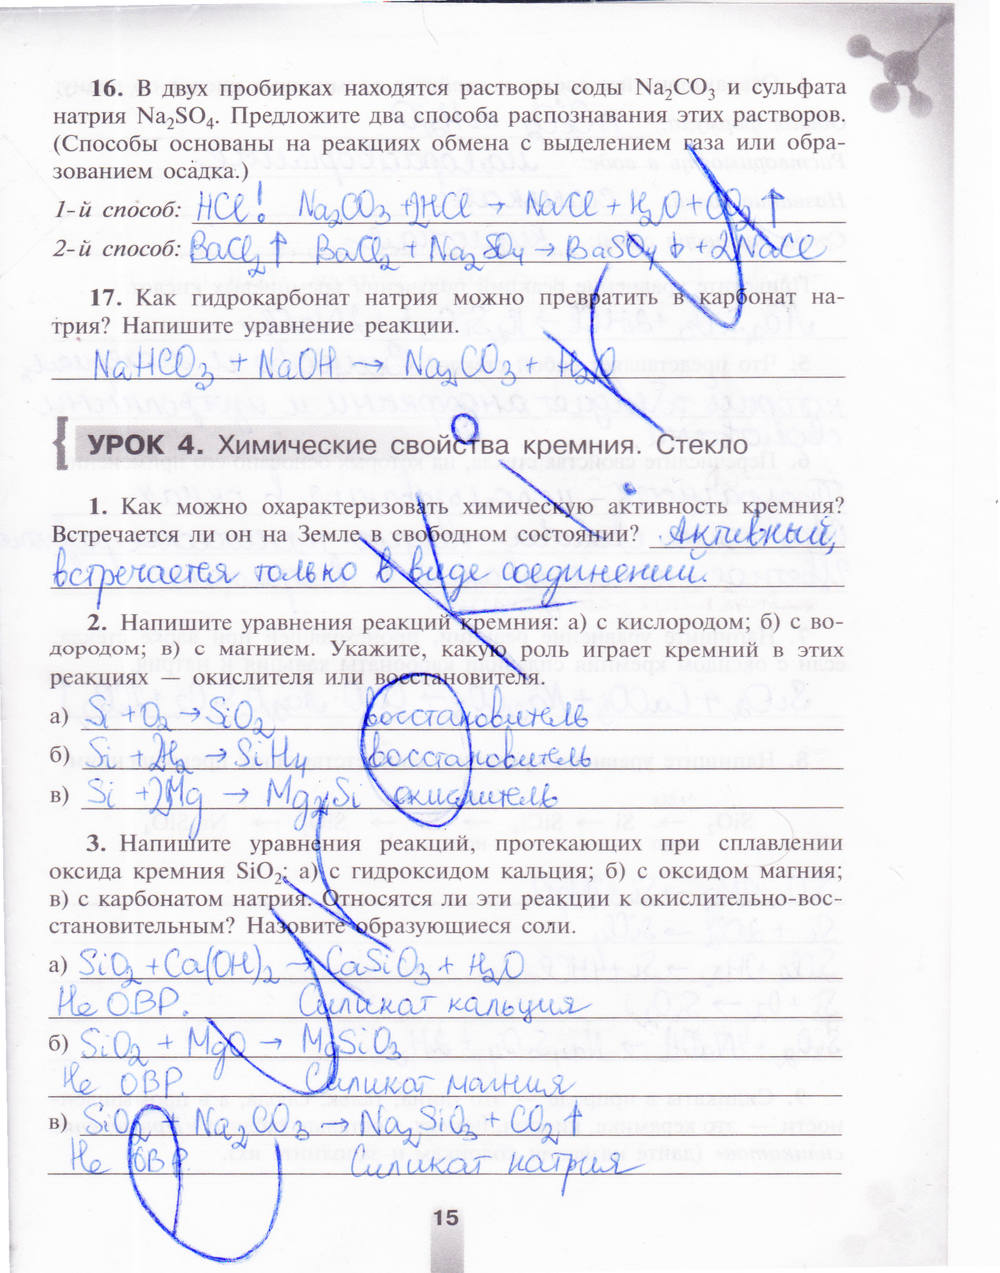 16. В двух пробирках находятся растворы соды Na₂CO₃ и сульфата
натрия Na₂SO₄. Предложите два способа распознавания этих растворов.
(Способы основаны на реакциях обмена с выделением газа или обра-
зованием осадка.)
1-й способ: HCl! Na₂CO₃ + 2HCl → NaCl + H₂O + CO₂ ↑
2-й способ: BaCl₂ ↑ BaCl₂ + Na₂SO₄ → BaSO₄ ↓ + 2NaCl
17. Как гидрокарбонат натрия можно превратить в карбонат на-
трия? Напишите уравнение реакции.
NaHCO₃ + NaOH → Na₂CO₃ + H₂O
УРОК 4. Химические свойства кремния. Стекло
1. Как можно охарактеризовать химическую активность кремния?
Встречается ли он на Земле в свободном состоянии? Активный,
встречается только в виде соединений.
2. Напишите уравнения реакций кремния: а) с кислородом; б) с во-
дородом; в) с магнием. Укажите, какую роль играет кремний в этих
реакциях — окислителя или восстановителя.
а) Si + O₂ → SiO₂ восстановитель
б) Si + 2H₂ → SiH₄ восстановитель
в) Si + 2Mg → Mg₂Si окислитель
3. Напишите уравнения реакций, протекающих при сплавлении
оксида кремния SiO₂: а) с гидроксидом кальция; б) с оксидом магния;
в) с карбонатом натрия. Относятся ли эти реакции к окислительно-вос-
становительным? Назовите образующиеся соли.
а) SiO₂ + Ca(OH)₂ → CaSiO₃ + H₂O
Не ОВР. Силикат кальция
б) SiO₂ + MgO → MgSiO₃
Не ОВР. Силикат магния
в) SiO₂ + Na₂CO₃ → Na₂SiO₃ + CO₂ ↑
Не ОВР. Силикат натрия
15